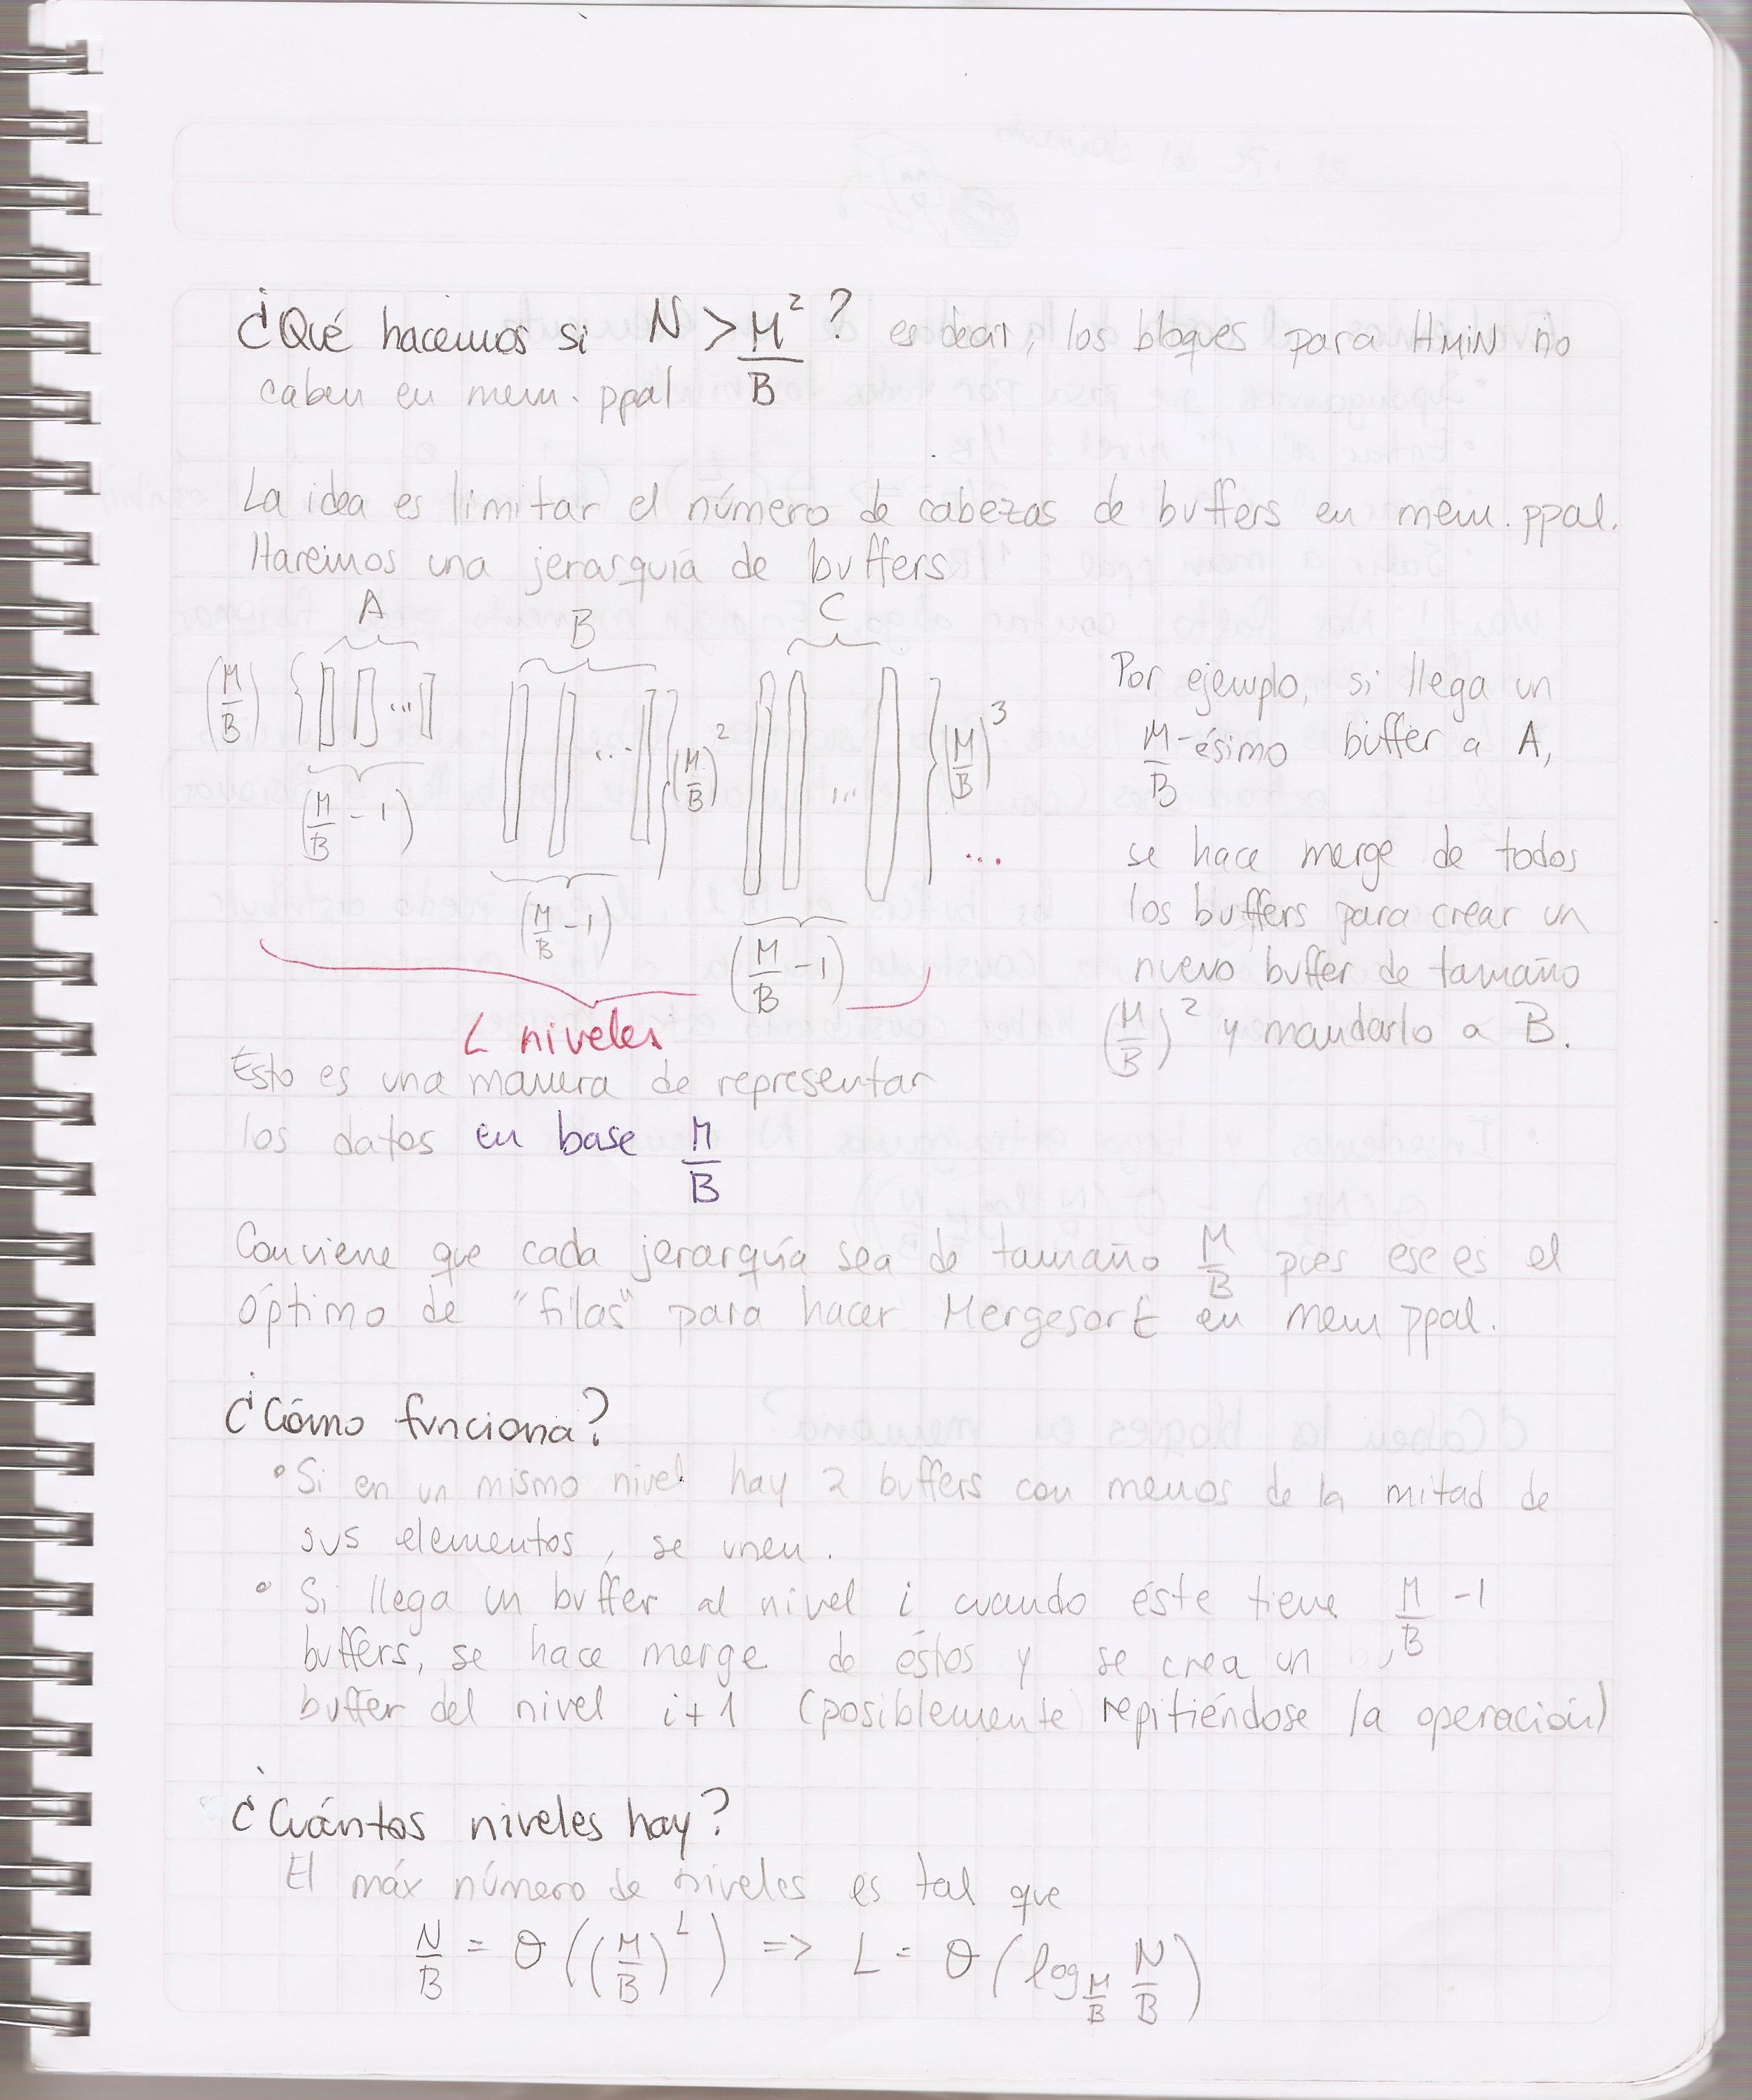 ¿Qué hacemos si N > M²/B ? es decir, los bloques para HMIN no
caben en mem. ppal
La idea es limitar el número de cabezas de buffers en mem. ppal.
Haremos una jerarquía de buffers
A B C
(M/B) { ... ... } (M/B)² ... } (M/B)³ ...
(M/B - 1) (M/B - 1) (M/B - 1)
L niveles
Por ejemplo, si llega un
M/B-ésimo buffer a A,
se hace merge de todos
los buffers para crear un
nuevo buffer de tamaño
(M/B)² y mandarlo a B.
Esto es una manera de representar
los datos en base M/B
Conviene que cada jerarquía sea de tamaño M/B pues ese es el
óptimo de "filas" para hacer Mergesort en mem ppal.
¿Cómo funciona?
• Si en un mismo nivel hay 2 buffers con menos de la mitad de
sus elementos, se unen.
• Si llega un buffer al nivel i cuando éste tiene M/B - 1
buffers, se hace merge de éstos y se crea un
buffer del nivel i+1 (posiblemente repitiéndose la operación)
¿Cuántos niveles hay?
El máx número de niveles es tal que
N/B = θ((M/B)^L) => L = θ(log_{M/B} N/B)